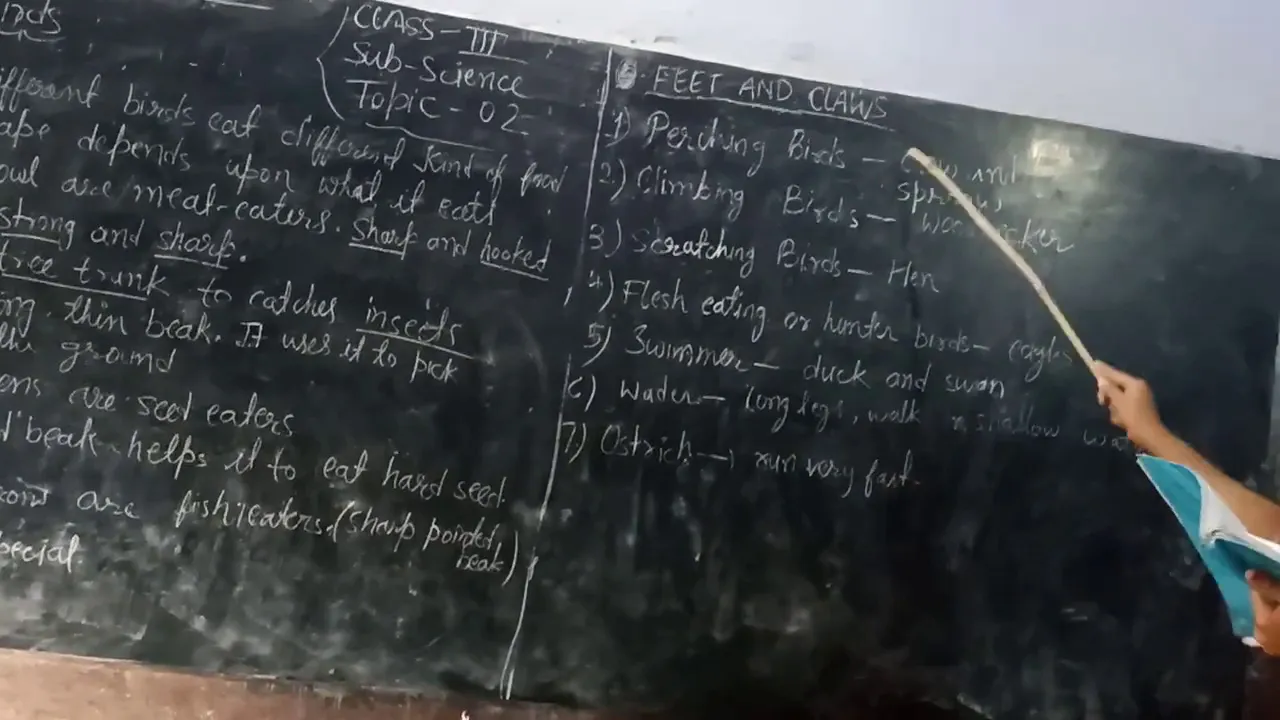 CLASS - III
Sub-Science
Topic - 02
birds eat different kind of food
depends upon what it eats
owl are meat-eaters. Sharp and hooked
strong and sharp.
tree trunk to catches insects
thin beak. It uses it to pick
the ground
are seed eaters
beak helps it to eat hard seed.
are fish eaters. (sharp pointed
beak)
FEET AND CLAWS
1) Perching Birds - and
2) Climbing Birds -
3) Scratching Birds - Hen
4) Flesh eating or hunter birds -
5) Swimmer - duck and swan
6) Wader - long legs, walk shallow
7) Ostrich → run very fast.